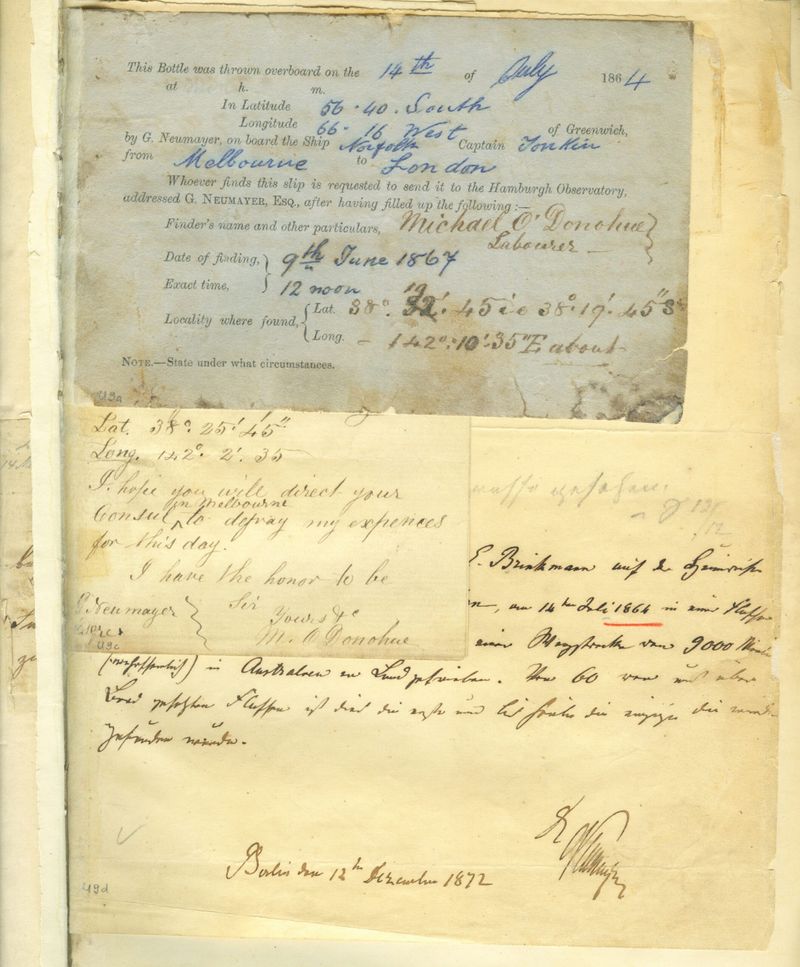 This Bottle was thrown overboard on the 14th of July 1864
at h. m.
In Latitude 56 . 40 . South
Longitude 66 . 16 West of Greenwich,
by G. Neumayer, on board the Ship Norfolk Captain Tonkin
from Melbourne to London
Whoever finds this slip is requested to send it to the Hamburgh Observatory,
addressed G. NEUMAYER, ESQ., after having filled up the following :—
Finder's name and other particulars, Michael O'Donohue
Labourer
Date of finding, 9th June 1867
Exact time, 12 noon
19
Locality where found, Lat. 38°. 32'. 45 i e 38°. 19'. 45" S
Long. – 142°. 10'. 35" E about
NOTE.—State under what circumstances.
49a
Lat. 38°. 25'. 45"
Long. 142°. 2'. 35
I hope you will direct your
in Melbourne
Consul to defray my expences
for this day.
I have the honor to be
Sir
G Neumayer Yours &c
M. O Donohue
49c
gesehen.
E. Brinkmann auf der
am 14ten Juli 1864 in eine Flasche
einer von 9000
in Australien an Land getrieben. Von 60 von uns über
Bord gesetzten Flaschen ist dies die erste und bis die einzige die
gefunden wurde.
Berlin den 12ten Dezember 1872
49d